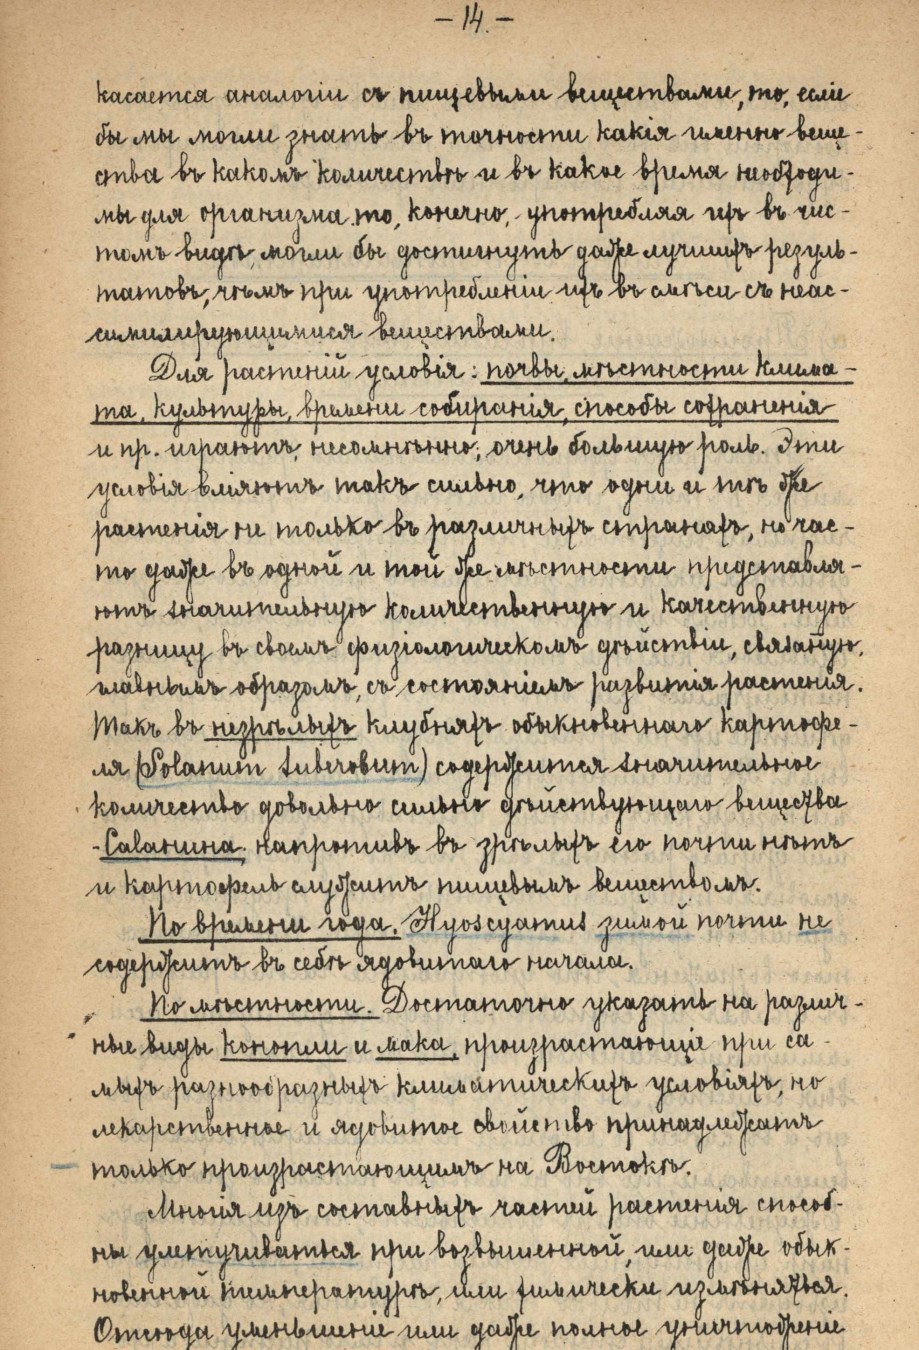 - 14. -
касается аналогіи съ пищевыми веществами, то, если
бы мы могли знать въ точности какія именно веще-
ства въ какомъ количествѣ и въ какое время необходи-
мы для организма то, конечно, употребляя ихъ въ чис-
томъ видѣ, могли бы достигнуть даже лучшихъ резуль-
татовъ, чѣмъ при употребленіи ихъ въ смѣси съ неас-
симилирующимися веществами.
Для растеній условія: почвы, мѣстности клима-
та, культуры, времени собиранія, способы сохраненія
и пр. играютъ, несомнѣнно, очень большую роль. Эти
условія вліяютъ такъ сильно, что одни и тѣ же
растенія не только въ различныхъ странахъ, но час-
то даже въ одной и той же мѣстности представля-
ютъ значительную количественную и качественную
разницу въ своемъ физіологическомъ дѣйствіи, связаную,
главнымъ образомъ, съ состояніемъ развитія растенія.
Такъ въ незрѣлыхъ клубняхъ обыкновеннаго картофе-
ля (Solanum tuberosum) содержится значительное
количество довольно сильно дѣйствующаго вещества
- Саланина, напротивъ въ зрѣлыхъ его почти нѣтъ
и картофель служитъ пищевымъ веществомъ.
По времени года. Hyoscyamus зимой почти не
содержитъ въ себѣ ядовитаго начала.
По мѣстности. Достаточно указать на различ-
ные виды конопли и мака, произрастающіе при са-
мыхъ разнообразныхъ климатическихъ условіяхъ, но
лекарственное и ядовитое свойство принадлежатъ
только произрастающимъ на Востокѣ.
Многія изъ составныхъ частей растенія способ-
ны улетучиваться при возвышенной, или даже обык-
новенной температурѣ, или химически измѣняться.
Отсюда уменьшеніе или даже полное уничтоженіе